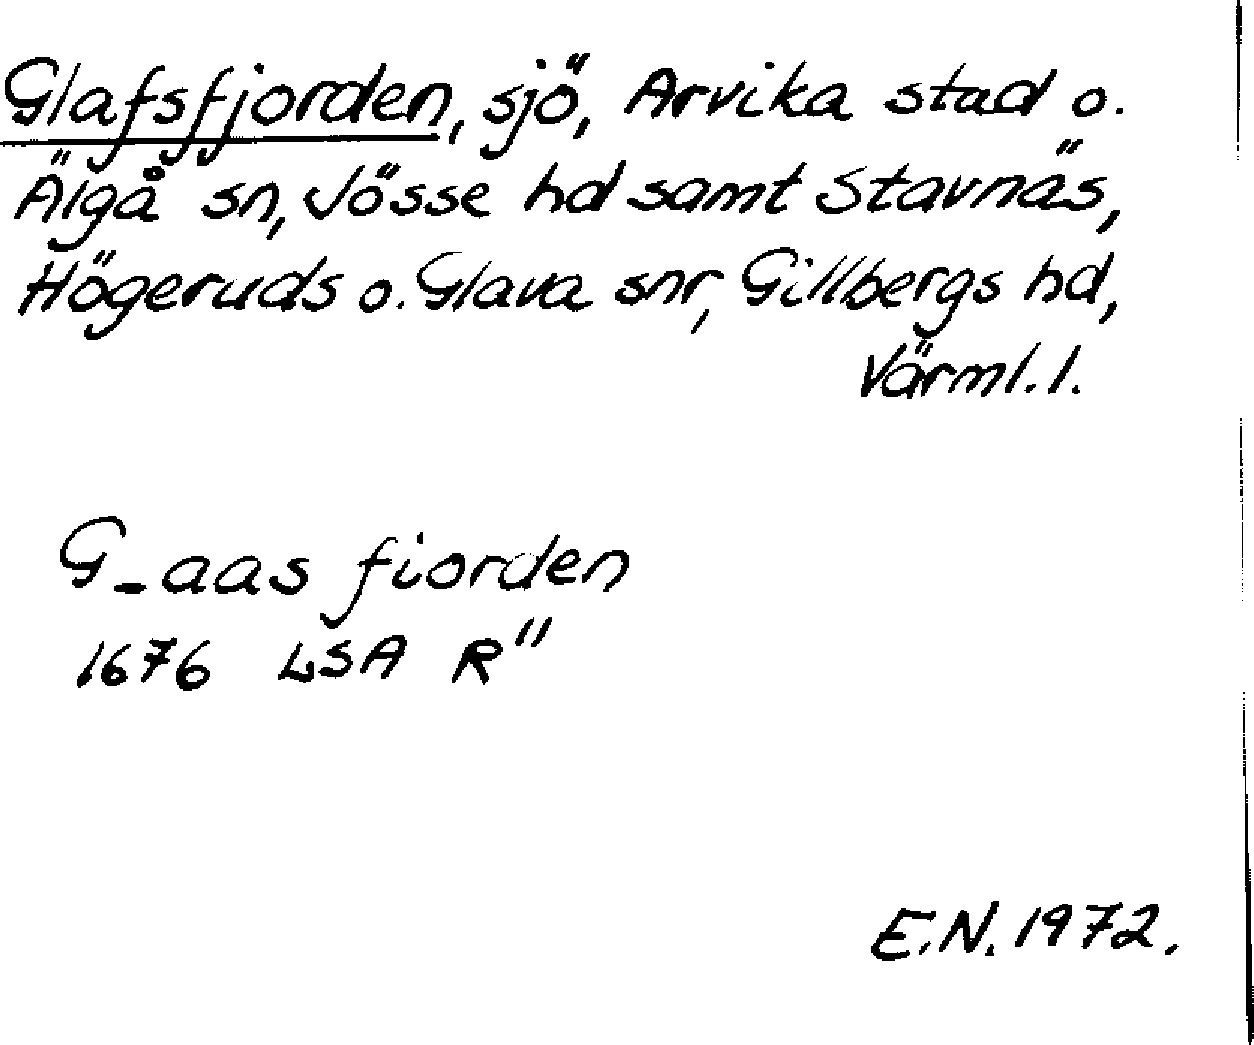 Glafsfjorden, sjö, Arvika stad o.
Älgå sn, Jösse hd samt Stavnäs,
Högeruds o. Glava snr, Gillbergs hd,
Värml. l.
G-aas fiorden
1676 LSA R"
E.N. 1972.